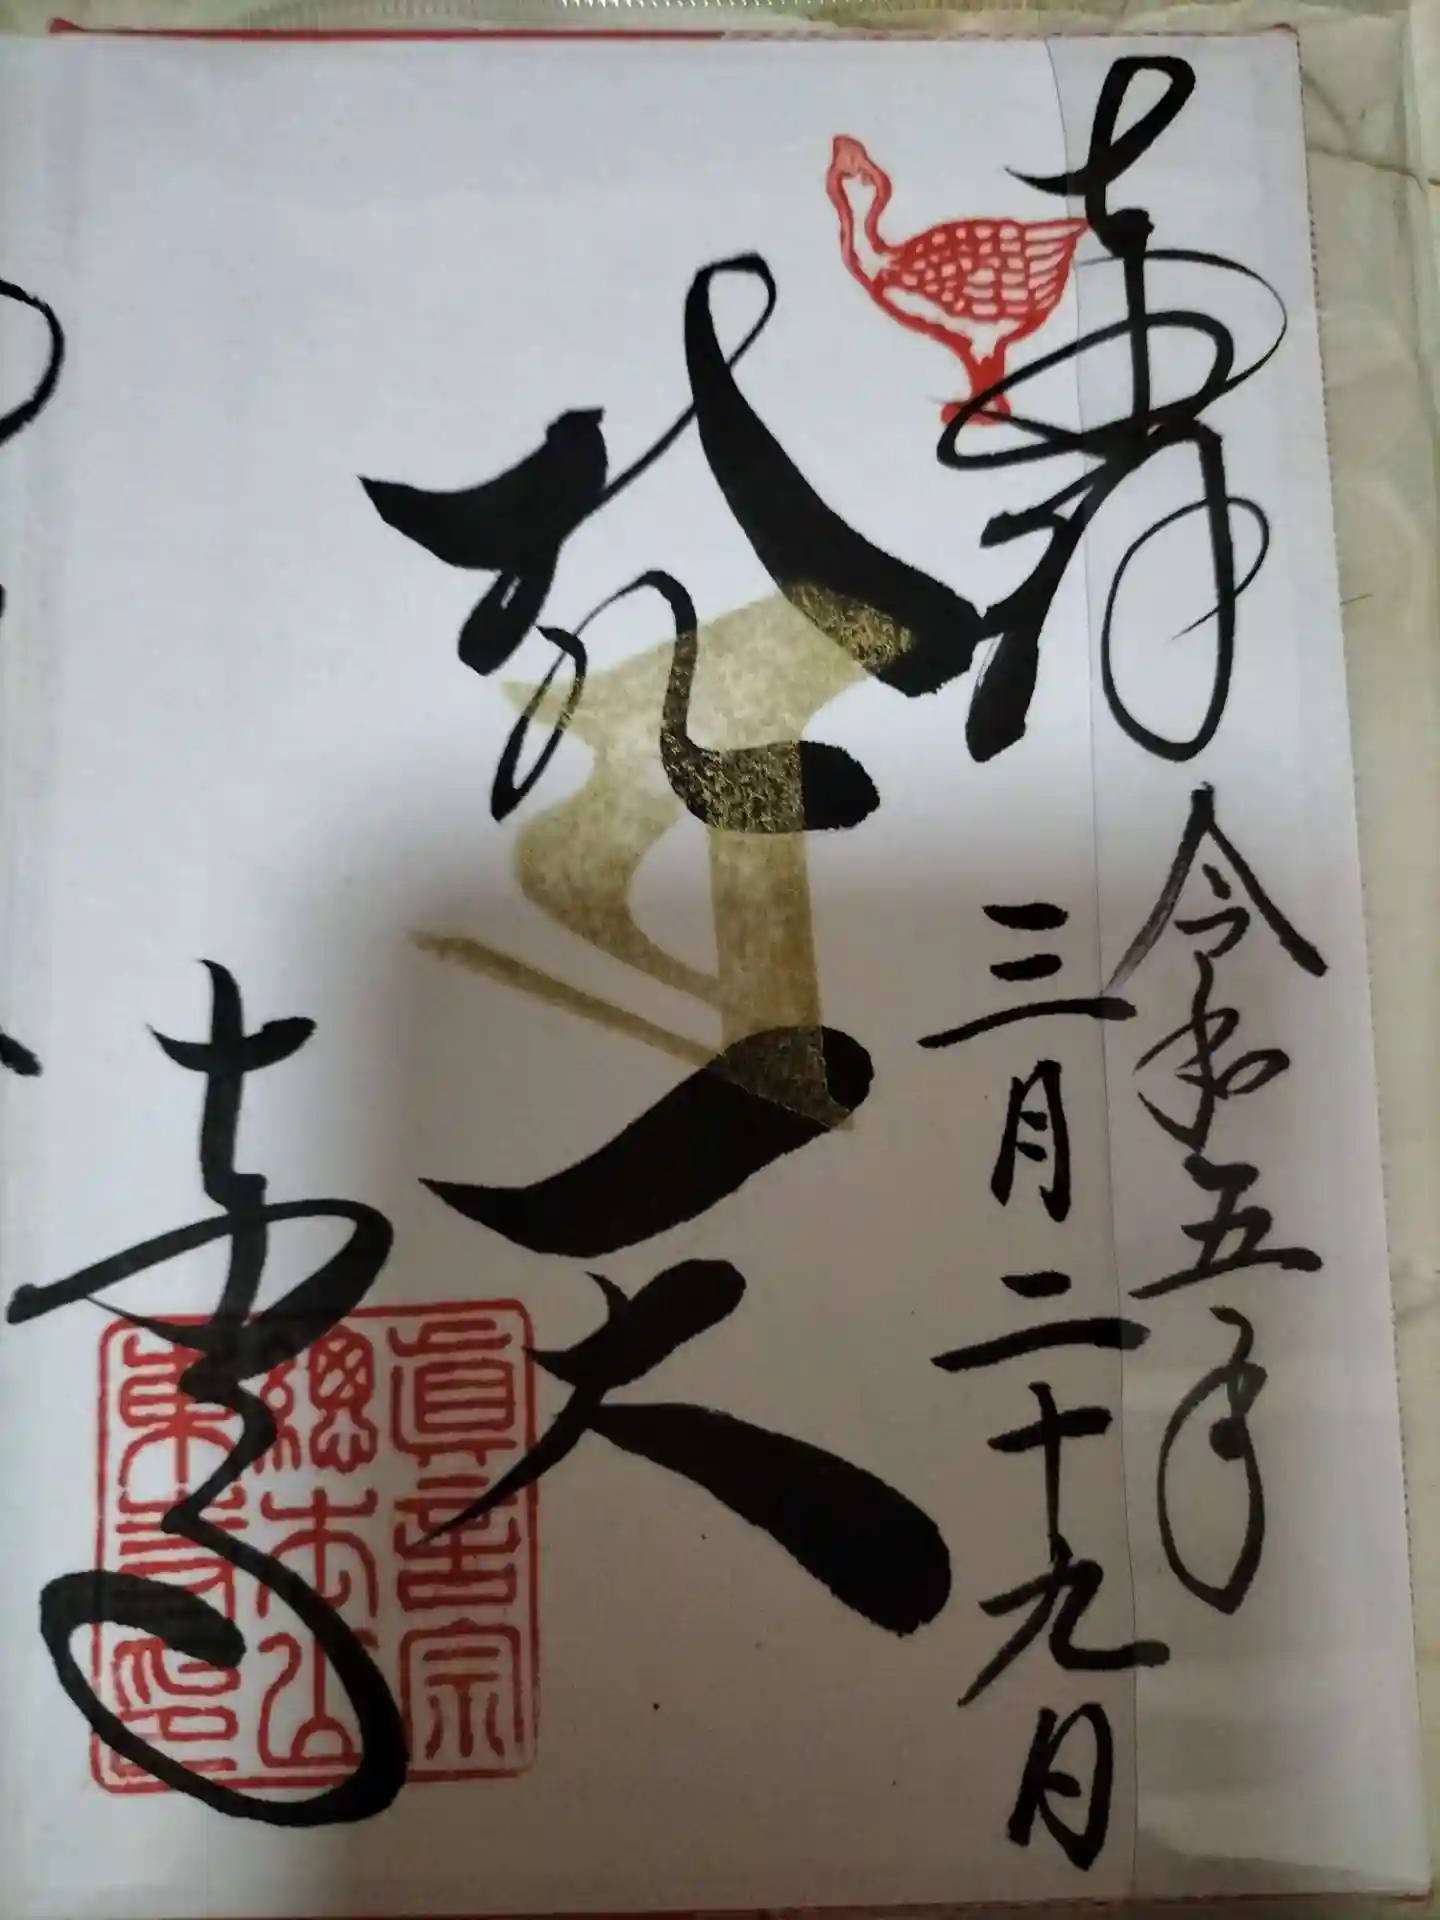 奉拝
令和五年
三月二十九日
梵天
東寺
眞言宗
總本山
東寺印